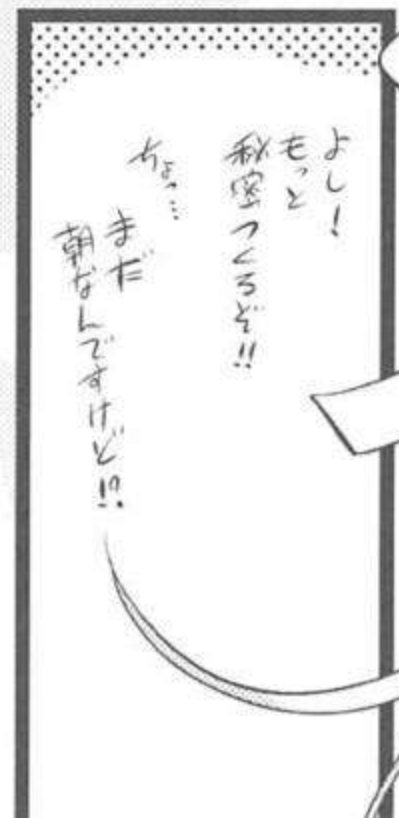 よし!
もっと
秘密つくるぞ!!
ちょっ…
まだ
朝なんですけど!?